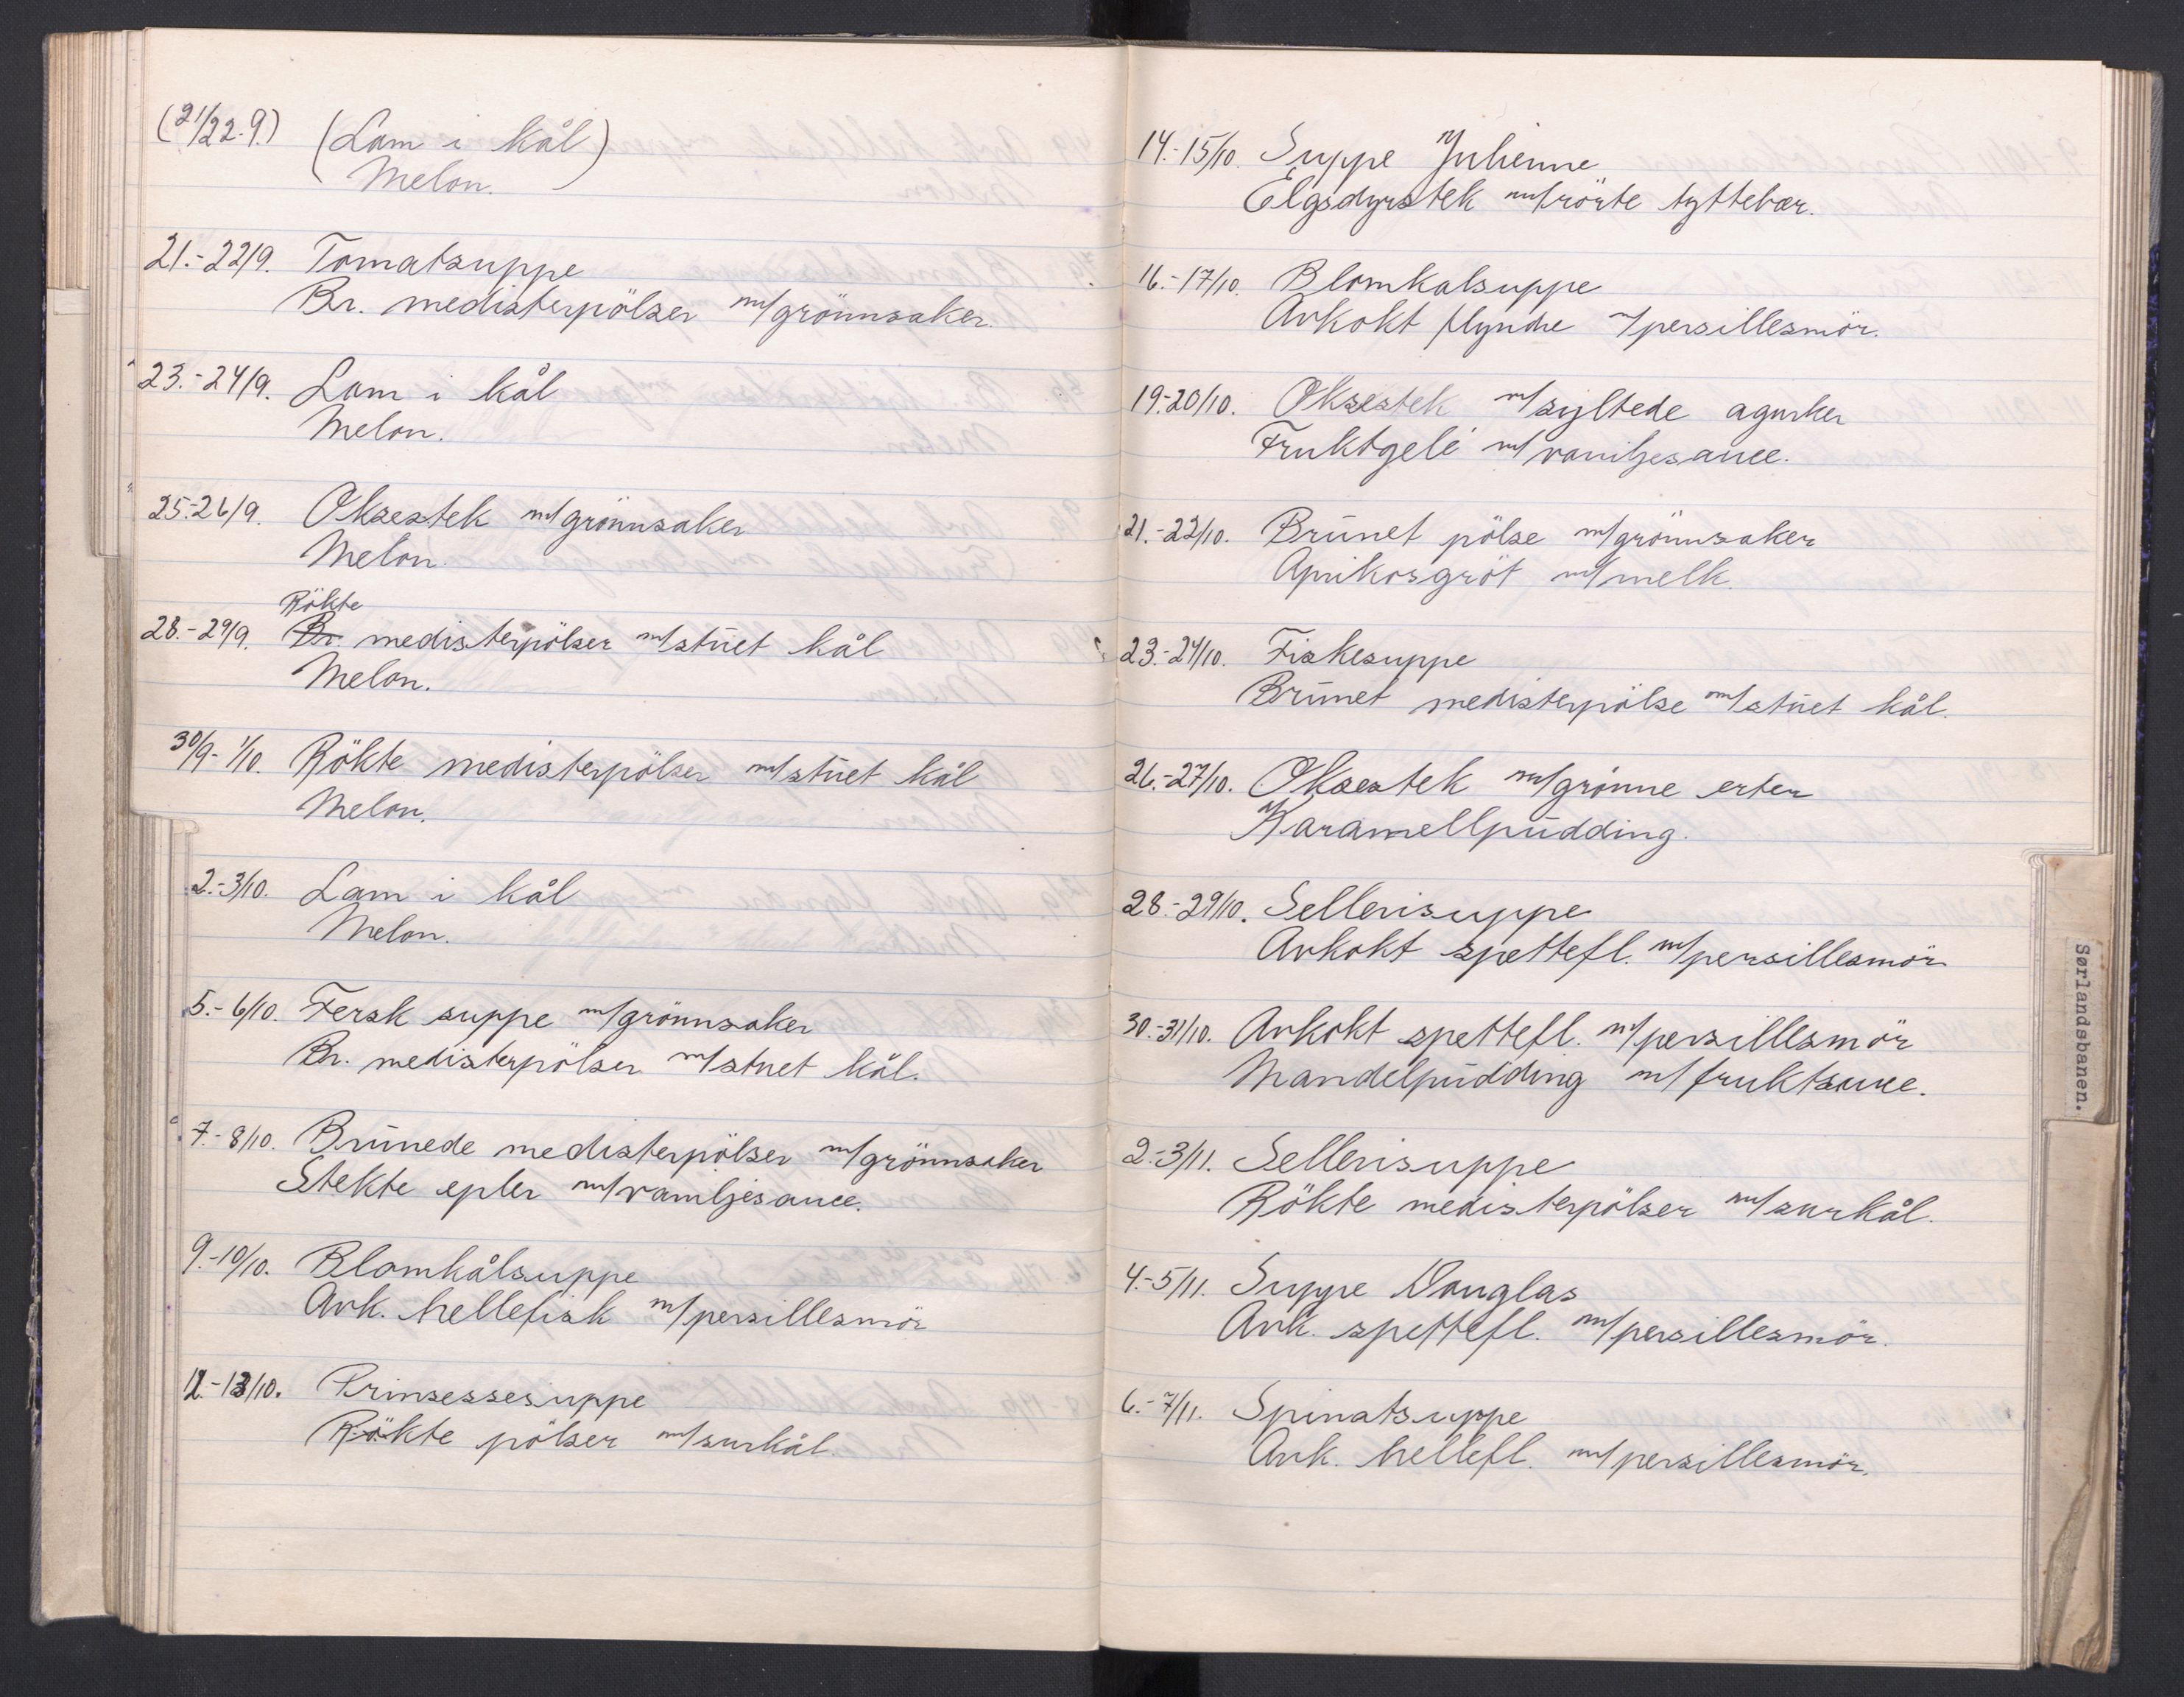 (21/22-9.) (Lam i kål)
Melon.
21.-22/9. Tomatsuppe
Br. medisterpölser m/grönnsaker.
23.-24/9. Lam i kål
Melon.
25.-26/9. Oksestek m/grönnsaker
Melon.
Rökte
28.-29/9. Br. medisterpölser m/stuet kål
Melon.
30/9-1/10. Rökte medisterpölser m/stuet kål
Melon.
2.-3/10. Lam i kål
Melon.
5.-6/10. Fersk suppe m/grönnsaker
Br. medisterpölser m/stuet kål.
7.-8/10. Brunede medisterpölser m/grönnsaker
Stekte epler m/vaniljesauce.
9.-10/10. Blomkålsuppe
Avk. hellefisk m/persillesmör
12.-13/10. Prinsessesuppe
Rökte pölser m/surkål.
14.-15/10. Suppe Julienne
Elgsdyrstek m/rörte tyttebær.
16.-17/10. Blomkalsuppe
Avkokt flyndre m/persillesmör.
19.-20/10. Oksestek m/syltede agurker
Fruktgelé m/vaniljesauce.
21.-22/10. Brunet pölse m/grönnsaker
Aprikosgröt m/melk.
23.-24/10. Fiskesuppe
Brunet medisterpölse m/stuet kål.
26.-27/10. Oksestek m/grönne erter
Karamellpudding.
28.-29/10. Sellerisuppe
Avkokt spettefl. m/persillesmör
30.-31/10. Avkokt spettefl. m/persillesmör
Mandelpudding m/fruktsauce.
2.-3/11. Sellerisuppe
Rökte medisterpölser m/surkål.
4.-5/11. Suppe Douglas
Avk. spettefl. m/persillesmör.
6.-7/11. Spinatsuppe
Avk. hellefl. m/persillesmör.
Sørlandsbanen.